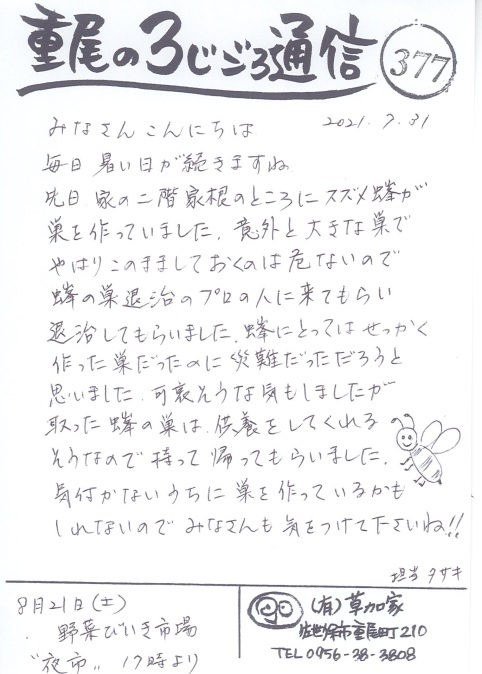 重尾の3じごろ通信
377
みなさんこんにちは 2021.7.31
毎日 暑い日が続きますね
先日、家の二階家根のところにスズメ蜂が
巣を作っていました。意外と大きな巣で
やはりこのまましておくのは危ないので
蜂の巣退治のプロの人に来てもらい
退治してもらいました。蜂にとってはせっかく
作った巣だったのに災難だっただろうと
思いました。可哀そうな気もしましたが
取った蜂の巣は、供養をしてくれる
そうなので持って帰ってもらいました。
気付かないうちに巣を作っているかも
しれないのでみなさんも気をつけて下さいね!!
担当 タサキ
8月21日(土)
野菜びいき市場
"夜市" 17時より
(有)草加家
佐世保市重尾町210
TEL 0956-38-3808